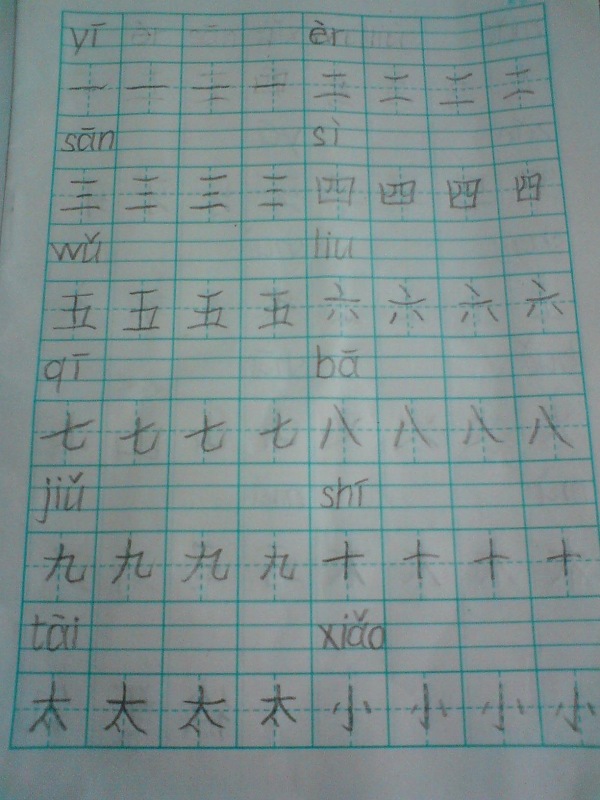 yī èr
一 一 一 一 二 二 二 二
sān sì
三 三 三 三 四 四 四 四
wǔ liu
五 五 五 五 六 六 六 六
qī bā
七 七 七 七 八 八 八 八
jiǔ shī
九 九 九 九 十 十 十 十
tāi xiǎo
太 太 太 太 小 小 小 小